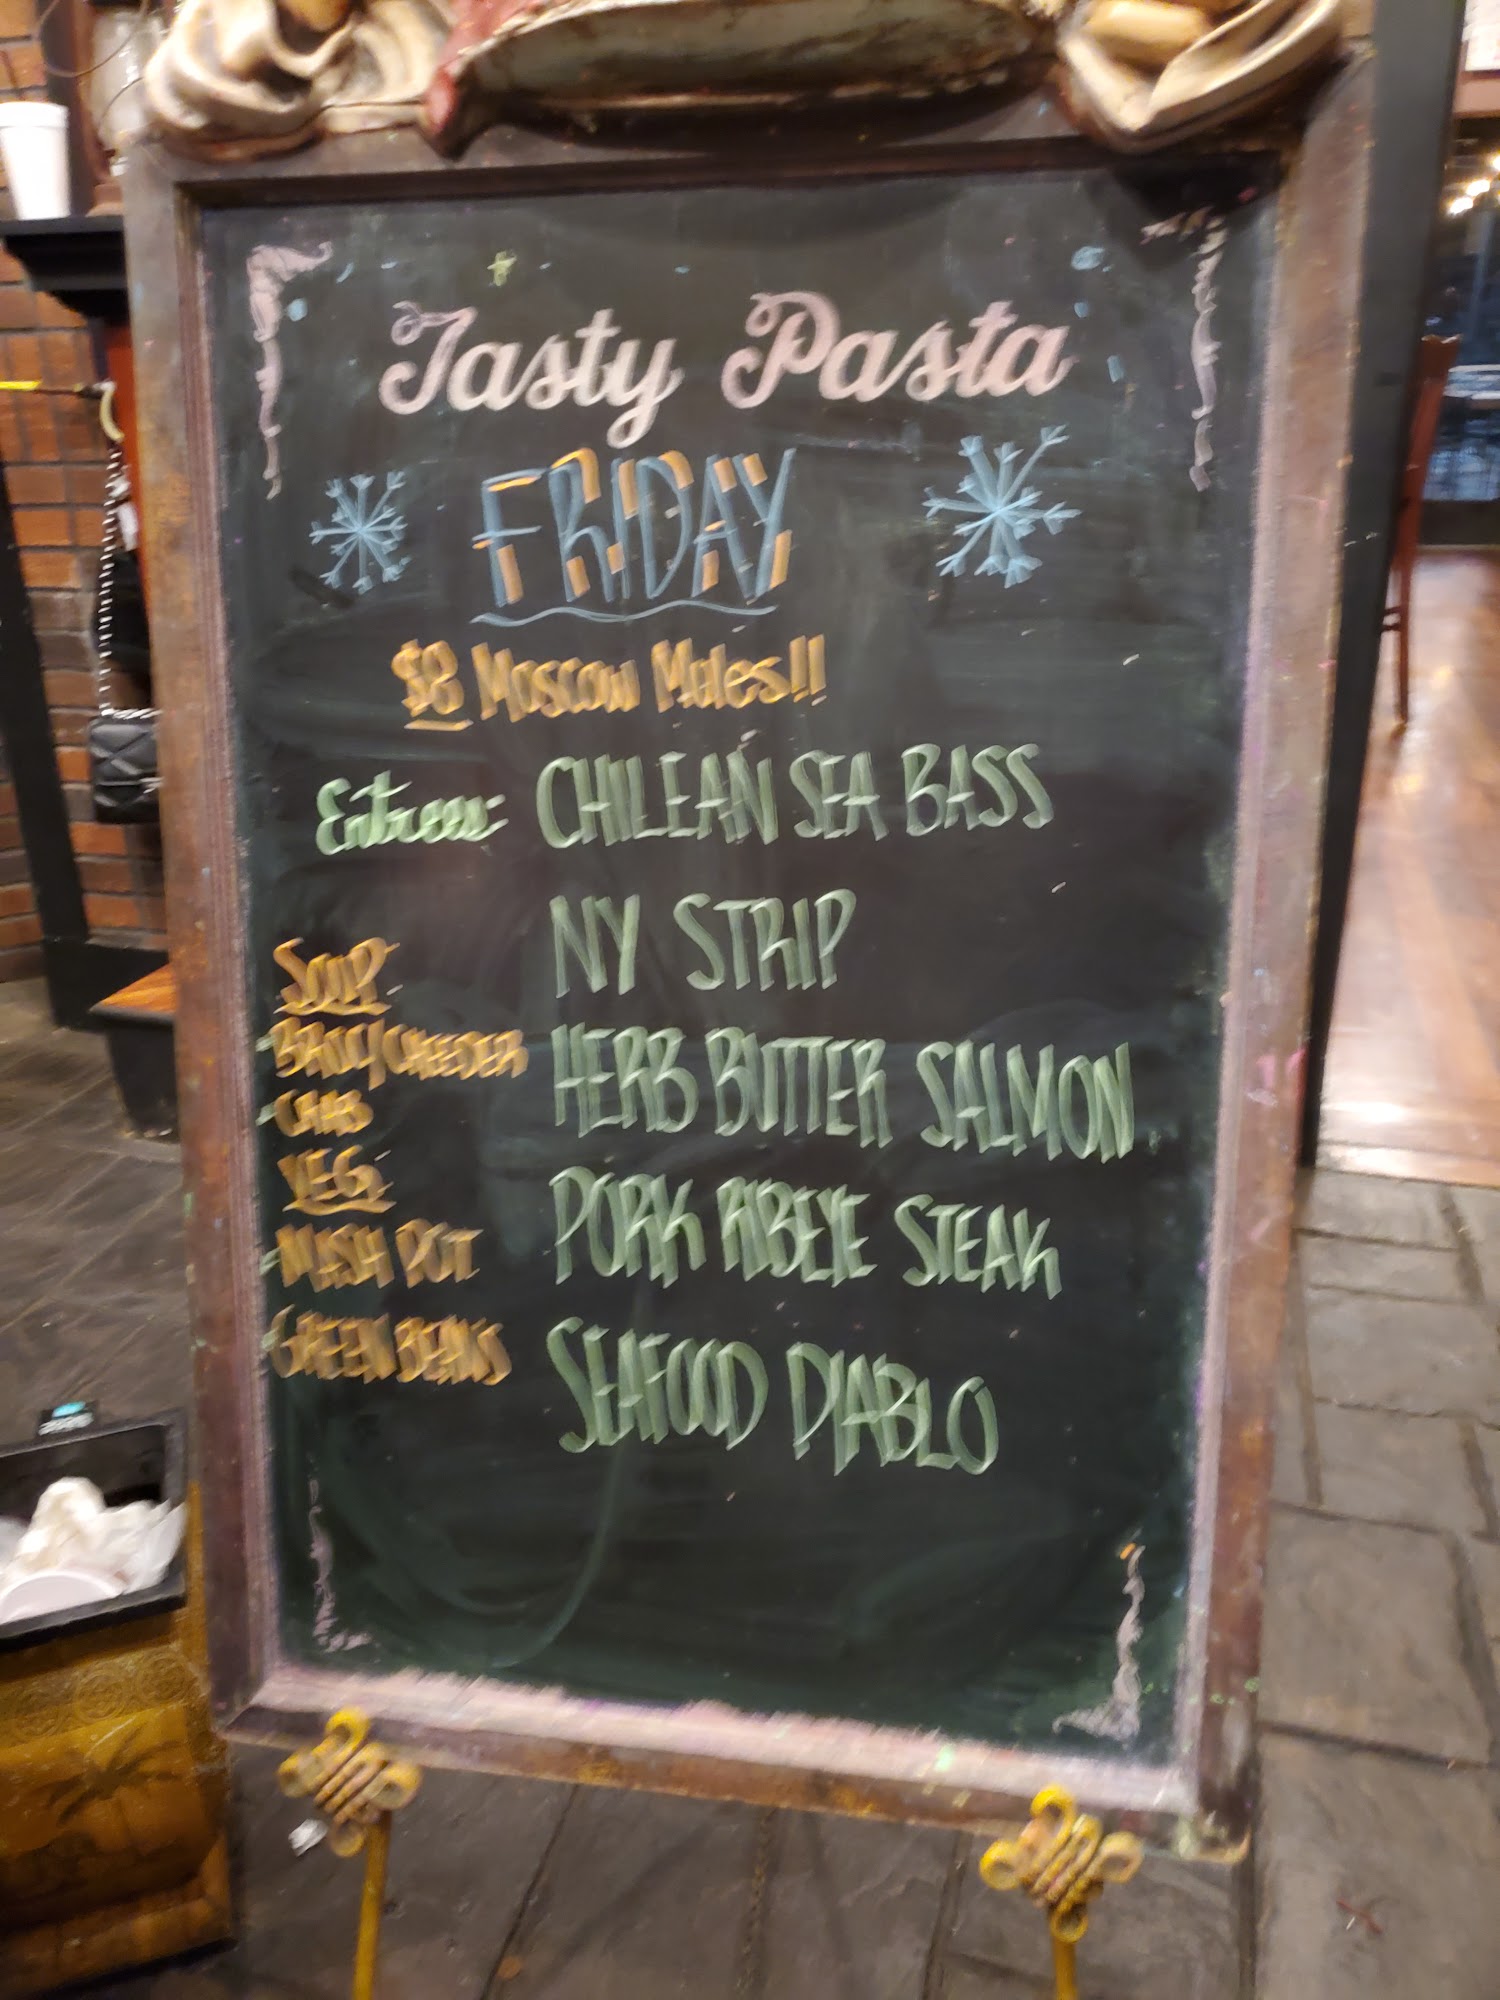 Tasty Pasta
FRIDAY
$8 Moscow Mules!!
Entrees: CHILEAN SEA BASS
NY STRIP
HERB BUTTER SALMON
PORK RIBEYE STEAK
SEAFOOD DIABLO
SOUP
- BROC/CHEDDER
- CRAB
VEG
- MASH POT
- GREEN BEANS